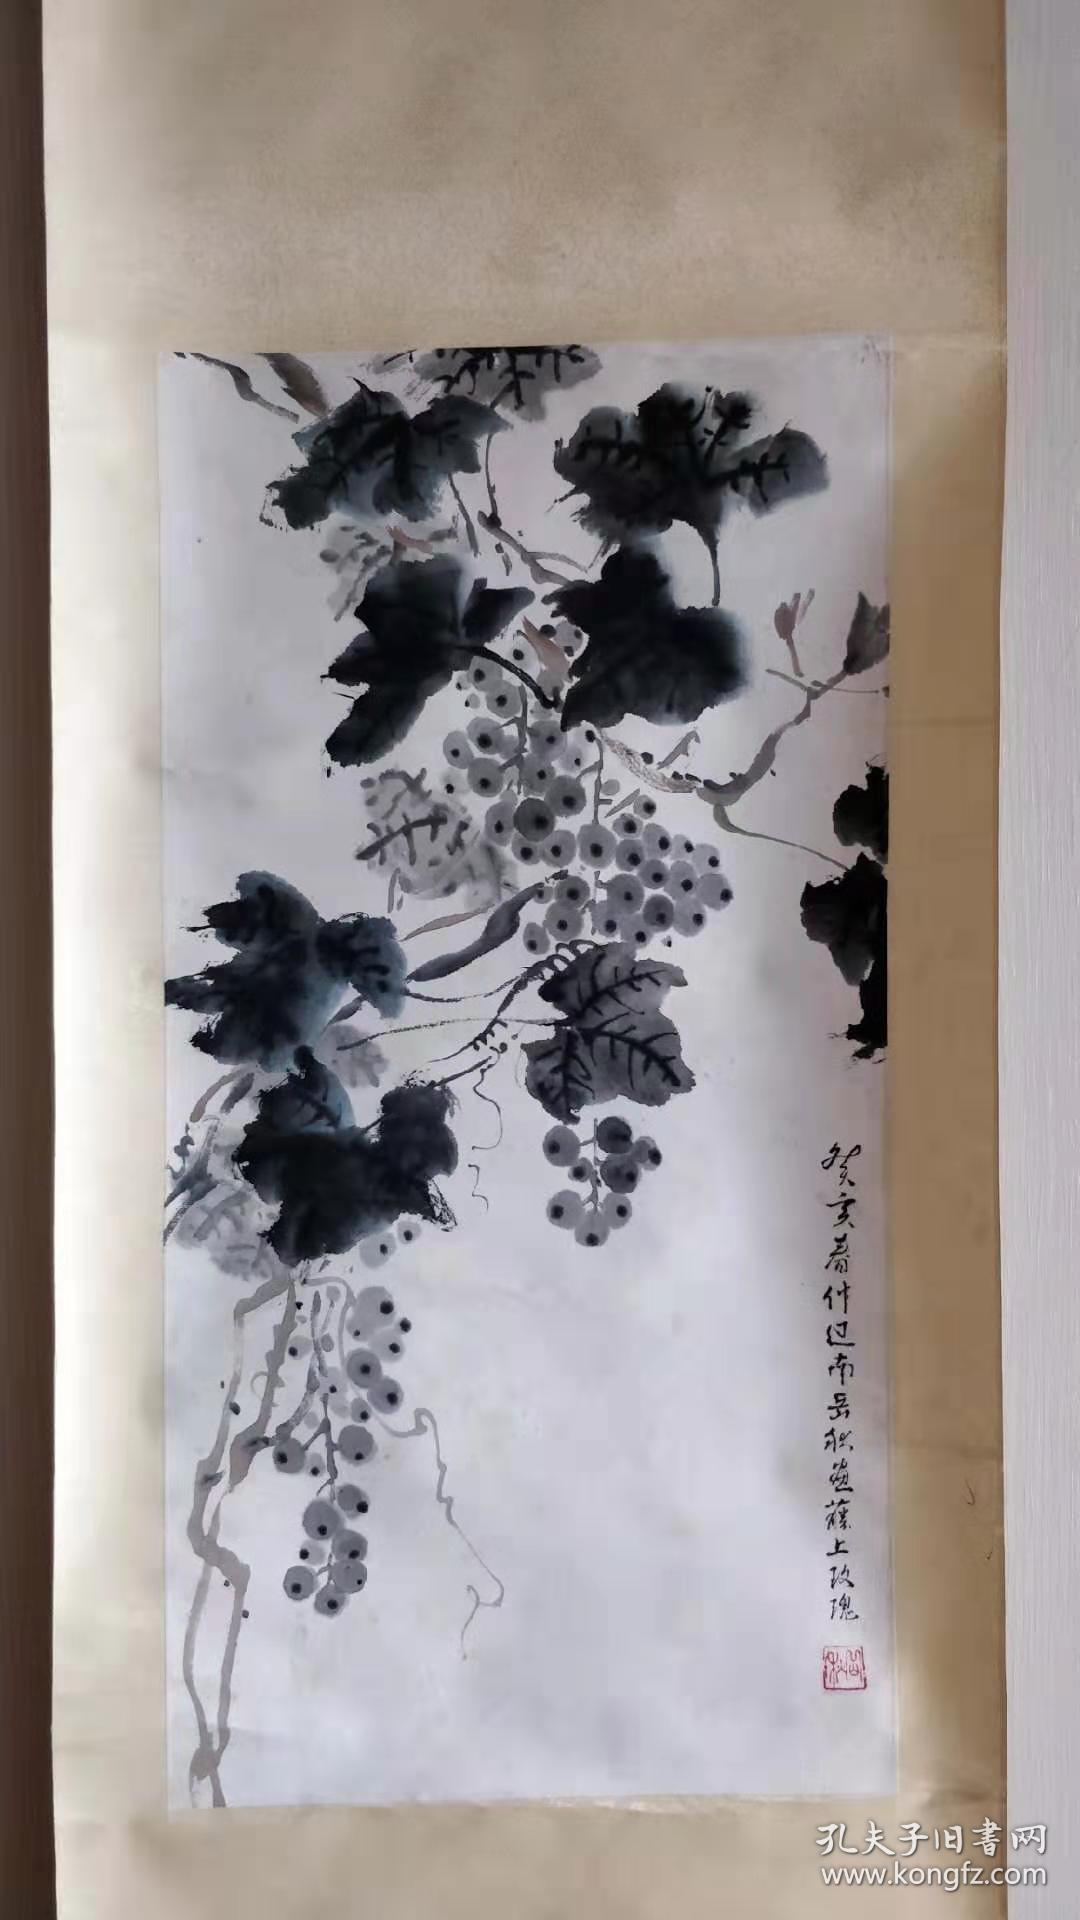 癸亥春仲过南岳秋画藤上玫瑰
孔夫子旧書网
www.kongfz.com